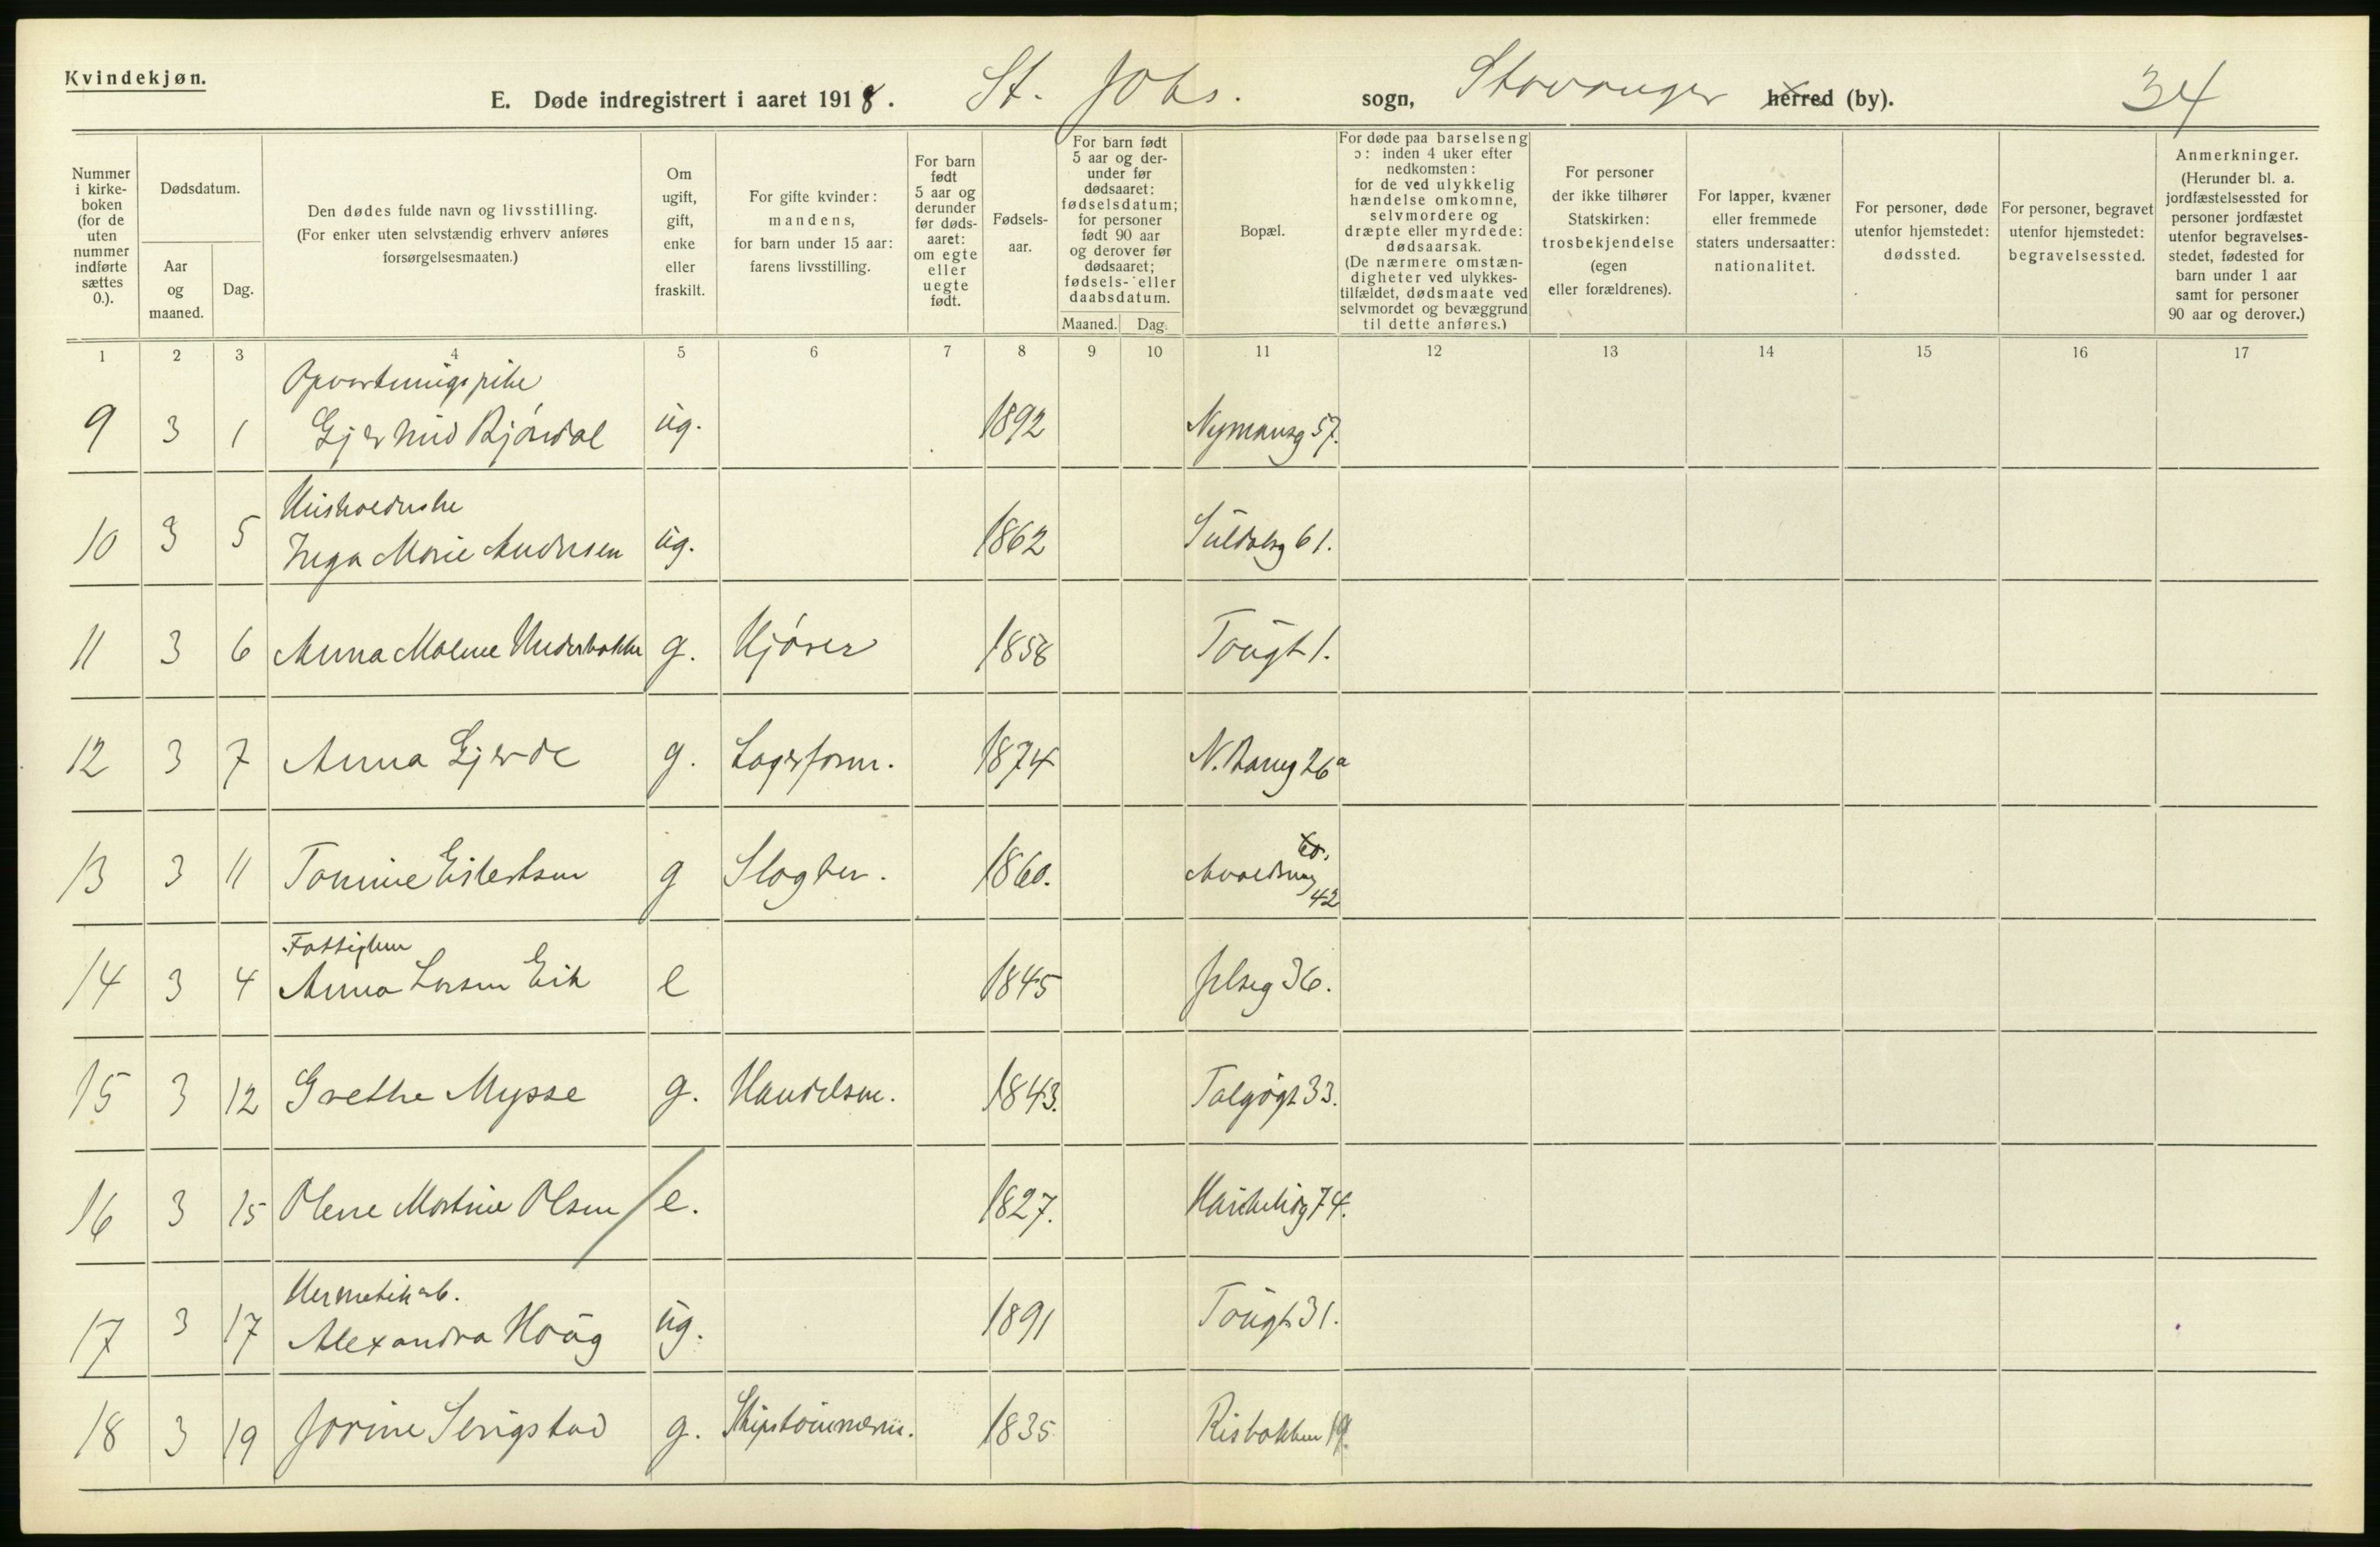 Kvindekjøn.
E. Døde indregistrert i aaret 1918. St. Johs. sogn, Stavanger herred (by). 34
Nummer i kirkeboken (for de uten nummer indførte sættes 0.).
Dødsdatum.
Aar og maaned.
Dag.
Den dødes fulde navn og livsstilling. (For enker uten selvstændig erhverv anføres forsørgelsesmaaten.)
Om ugift, gift, enke eller fraskilt.
For gifte kvinder: mandens, for barn under 15 aar: farens livsstilling.
For barn født 5 aar og derunder før dødsaaret: om egte eller uegte født.
Fødselsaar.
For barn født 5 aar og derunder før dødsaaret: fødselsdatum; for personer født 90 aar og derover før dødsaaret; fødsels- eller daabsdatum.
Maaned. Dag.
Bopæl.
For døde paa barselseng ɔ: inden 4 uker efter nedkomsten: for de ved ulykkelig hændelse omkomne, selvmordere og dræpte eller myrdede: dødsaarsak. (De nærmere omstændigheter ved ulykkestilfældet, dødsmaate ved selvmordet og bevæggrund til dette anføres.)
For personer der ikke tilhører Statskirken: trosbekjendelse (egen eller forældrenes).
For lapper, kvæner eller fremmede staters undersaatter: nationalitet.
For personer, døde utenfor hjemstedet: dødssted.
For personer, begravet utenfor hjemstedet: begravelsessted.
Anmerkninger. (Herunder bl. a. jordfæstelsessted for personer jordfæstet utenfor begravelsesstedet, fødested for barn under 1 aar samt for personer 90 aar og derover.)
1 2 3 4 5 6 7 8 9 10 11 12 13 14 15 16 17
Opvartningspike
9 3 1 Gjertrud Bjørdal ug. 1892 Nymansg 57.
Husholderske
10 3 5 Inga Marie Andersen ug. 1862 Suldalsg 61.
11 3 6 Anna Malene g. Kjører 1858 Taugt 1.
12 3 7 Anna Gjerde g. Lagerform. 1874 26a
13 3 11 Tomine Eilertsen g Slagter. 1860. 42
Fattighm
14 3 4 Anna Larsen Eik e 1845 Jelseg 36.
15 3 12 Grethe Mysse g. Handelsm. 1843. Talgøgt 33.
16 3 15 Olene Martine Olsen e. 1827. 74.
Hermetikarb.
17 3 17 Alexandra Haug ug. 1891 Taugt 31.
18 3 19 Jorine Serigstad g. Skipstømmerm. 1835 Risbakken 19.